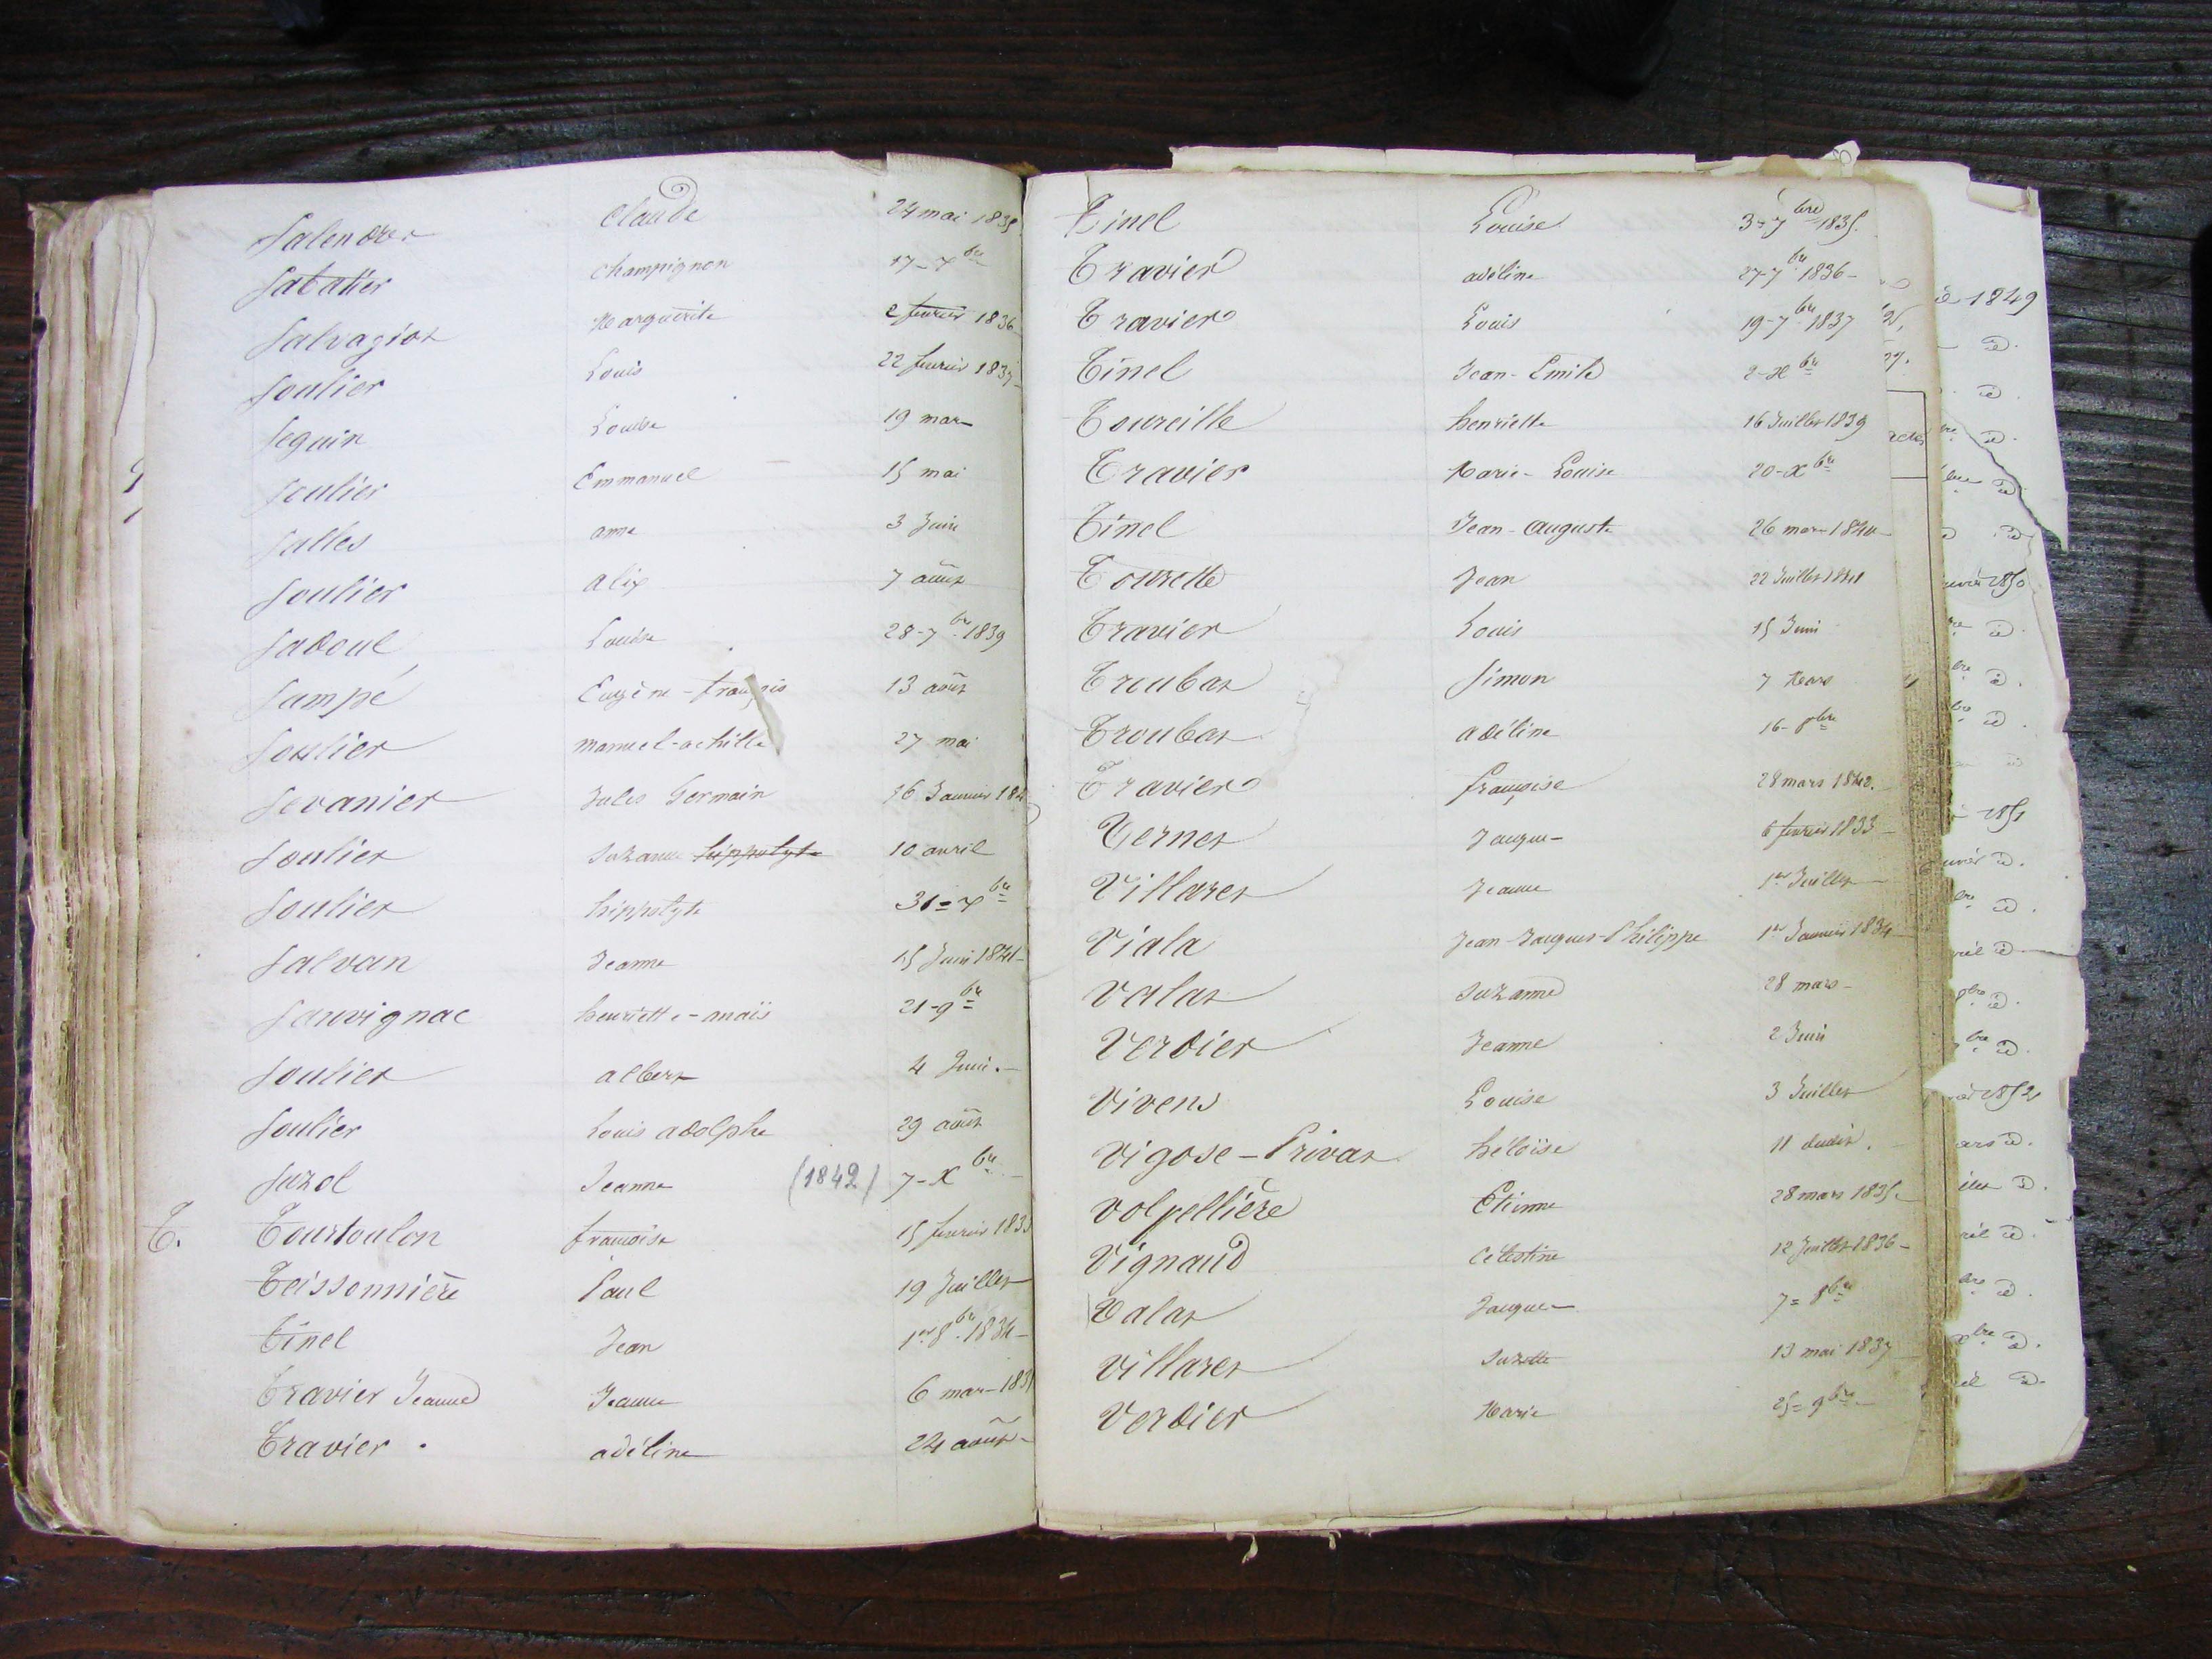 Salendres Claude 24 mai 1835
Sabatier Champignon 17-xbre
Salvagiot Marguerite 2 fevrier 1836
Soulier Louis 22 fevrier 1837
Seguin Louise 19 mars
Soulier Emmanuel 15 mai
Salles anne 3 Juin
Soulier alix 7 août
Sadoul Louise 28-7bre 1839
Sampé Eugène-françois 13 août
Soulier manuel-achille 27 mai
Sevanier Jules Germain 16 Janvier 184
Soulier Suzanne hippolyte 10 avril
Soulier hippolyte 31=xbre
Salvan Jeanne 15 Juin 1841
Sauvignac henriette-anaïs 21-9bre
Soulier albert 4 Juin.
Soulier Louis adolphe 29 août
Suzol Jeanne (1842) 7-Xbre
T. Tourtoulon françoise 15 fevrier 1833
Teissonnière Paul 19 Juillet
Tinel Jean 1er 8bre 1834
Travier Jeanne Jeanne 6 mars 183
Travier. adéline 24 août
Tinel Louise 3=7bre 1835.
Travier adéline 27-7bre 1836
Travier Louis 19-7bre 1837
Tinel Jean-Emile 2-xbre
Toureille henriette 16 Juillet 1839
Travier Marie-Louise 20-Xbre
Tinel Jean-auguste 26 mars 1840
Tourette Jean 22 Juillet 1841
Travier Louis 15 Juin
Troubat Simon 7 Mars
Troubat adéline 16-8bre
Travier françoise 28 mars 1842.
Vernet Jacques 6 fevrier 1833
Villaret Jeanne 1er Juillet
Viala Jean-Jacques-Philippe 1er Janvier 1834
Valat Suzanne 28 mars
Verdier Jeanne 2 Juin
Vivens Louise 3 Juillet
Vigose-Privat héloïse 11 dudit.
Volpellière Etienne 28 mars 1835
Vignaud Célestine 12 Juillet 1836
Valat Jacques 7=8bre
Villaret Suzette 13 mai 1837
Verdier Marie 25=9bre
1849
1850
1851
1852